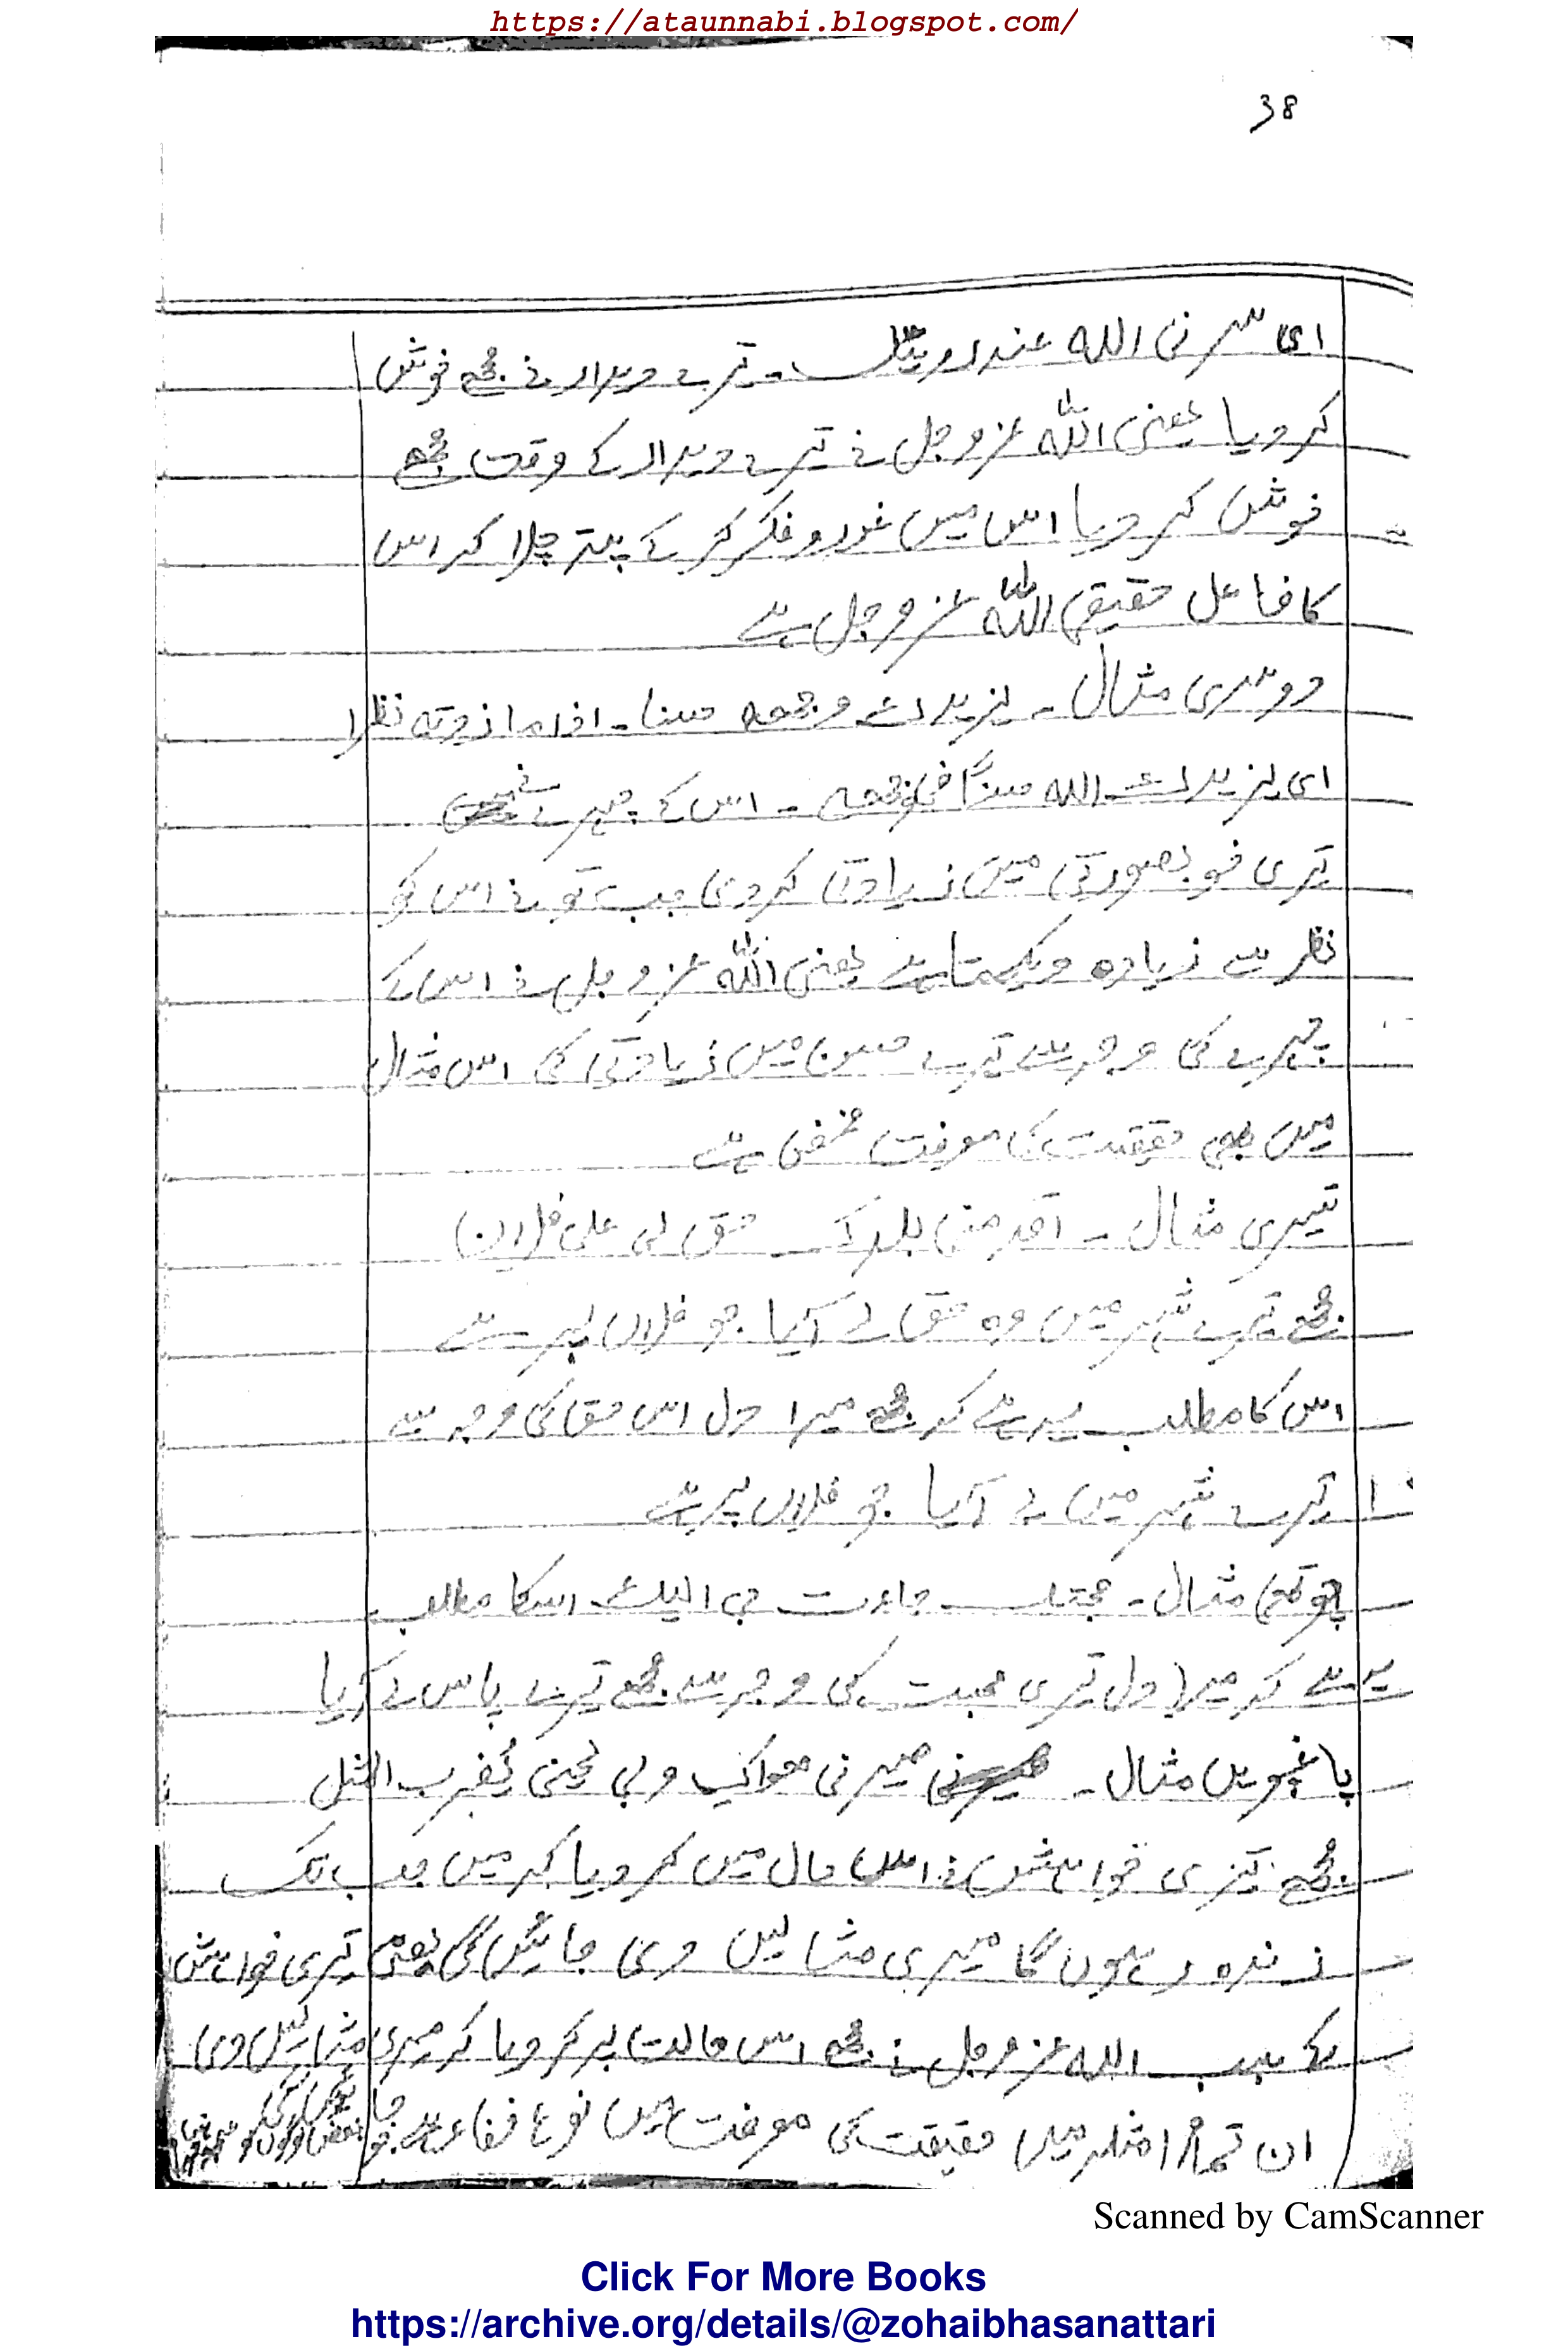 https://ataunnabi.blogspot.com/
38
ای سرنی اللہ عند رویتک ۔ تیرے دیدار نے مجھے خوش
کر دیا یعنی اللہ عزوجل نے تیرے دیدار کے وقت مجھے
خوش کر دیا اس میں غور و فکر کر کے پتہ چلا کہ اس
کا فاعل حقیقی اللہ عزوجل ہے
دوسری مثال ۔ یزیدک وجھہ حسنا ۔ اذا ما زدتہ نظرا
ای یزیدک اللہ حسنا فی وجھہ ۔ اس کے چہرے نے
تیری خوبصورتی میں زیادتی کر دی جب تو نے اس کو
نظر سے زیادہ دیکھتا ہے یعنی اللہ عزوجل نے اس کے
چہرے کی وجہ سے تیرے حسن میں زیادتی کی اس مثال
میں بھی حقیقت کی معرفت مخفی ہے
تیسری مثال ۔ اقدمنی بلدک حق لی علی فلان
مجھے تیرے شہر میں وہ حق لے آیا جو فلاں پر ہے
اس کا مطلب یہ ہے کہ مجھے میرا دل اس حق کی وجہ سے
تیرے شہر میں لے آیا جو فلاں پر ہے
چوتھی مثال ۔ محبتک جاءت بی الیک اسکا مطلب
یہ ہے کہ میرا دل تیری محبت کی وجہ سے مجھے تیرے پاس لے آیا
پانچویں مثال ۔ صیرنی ھواک وبی لحینی یضرب المثل
مجھے تیری خواہش نے اس حال میں کر دیا کہ میں جب تک
زندہ رہوں گا میری مثالیں دی جائیں گی یعنی تیری خواہش
کے سبب اللہ عزوجل نے مجھے اس حالت پر کر دیا کہ میری مثالیں دی
جائیں گی
ان تمام امثلہ میں حقیقت کی معرفت میں نوعا خفا ہے جو بعض لوگوں کو
Scanned by CamScanner
Click For More Books
https://archive.org/details/@zohaibhasanattari